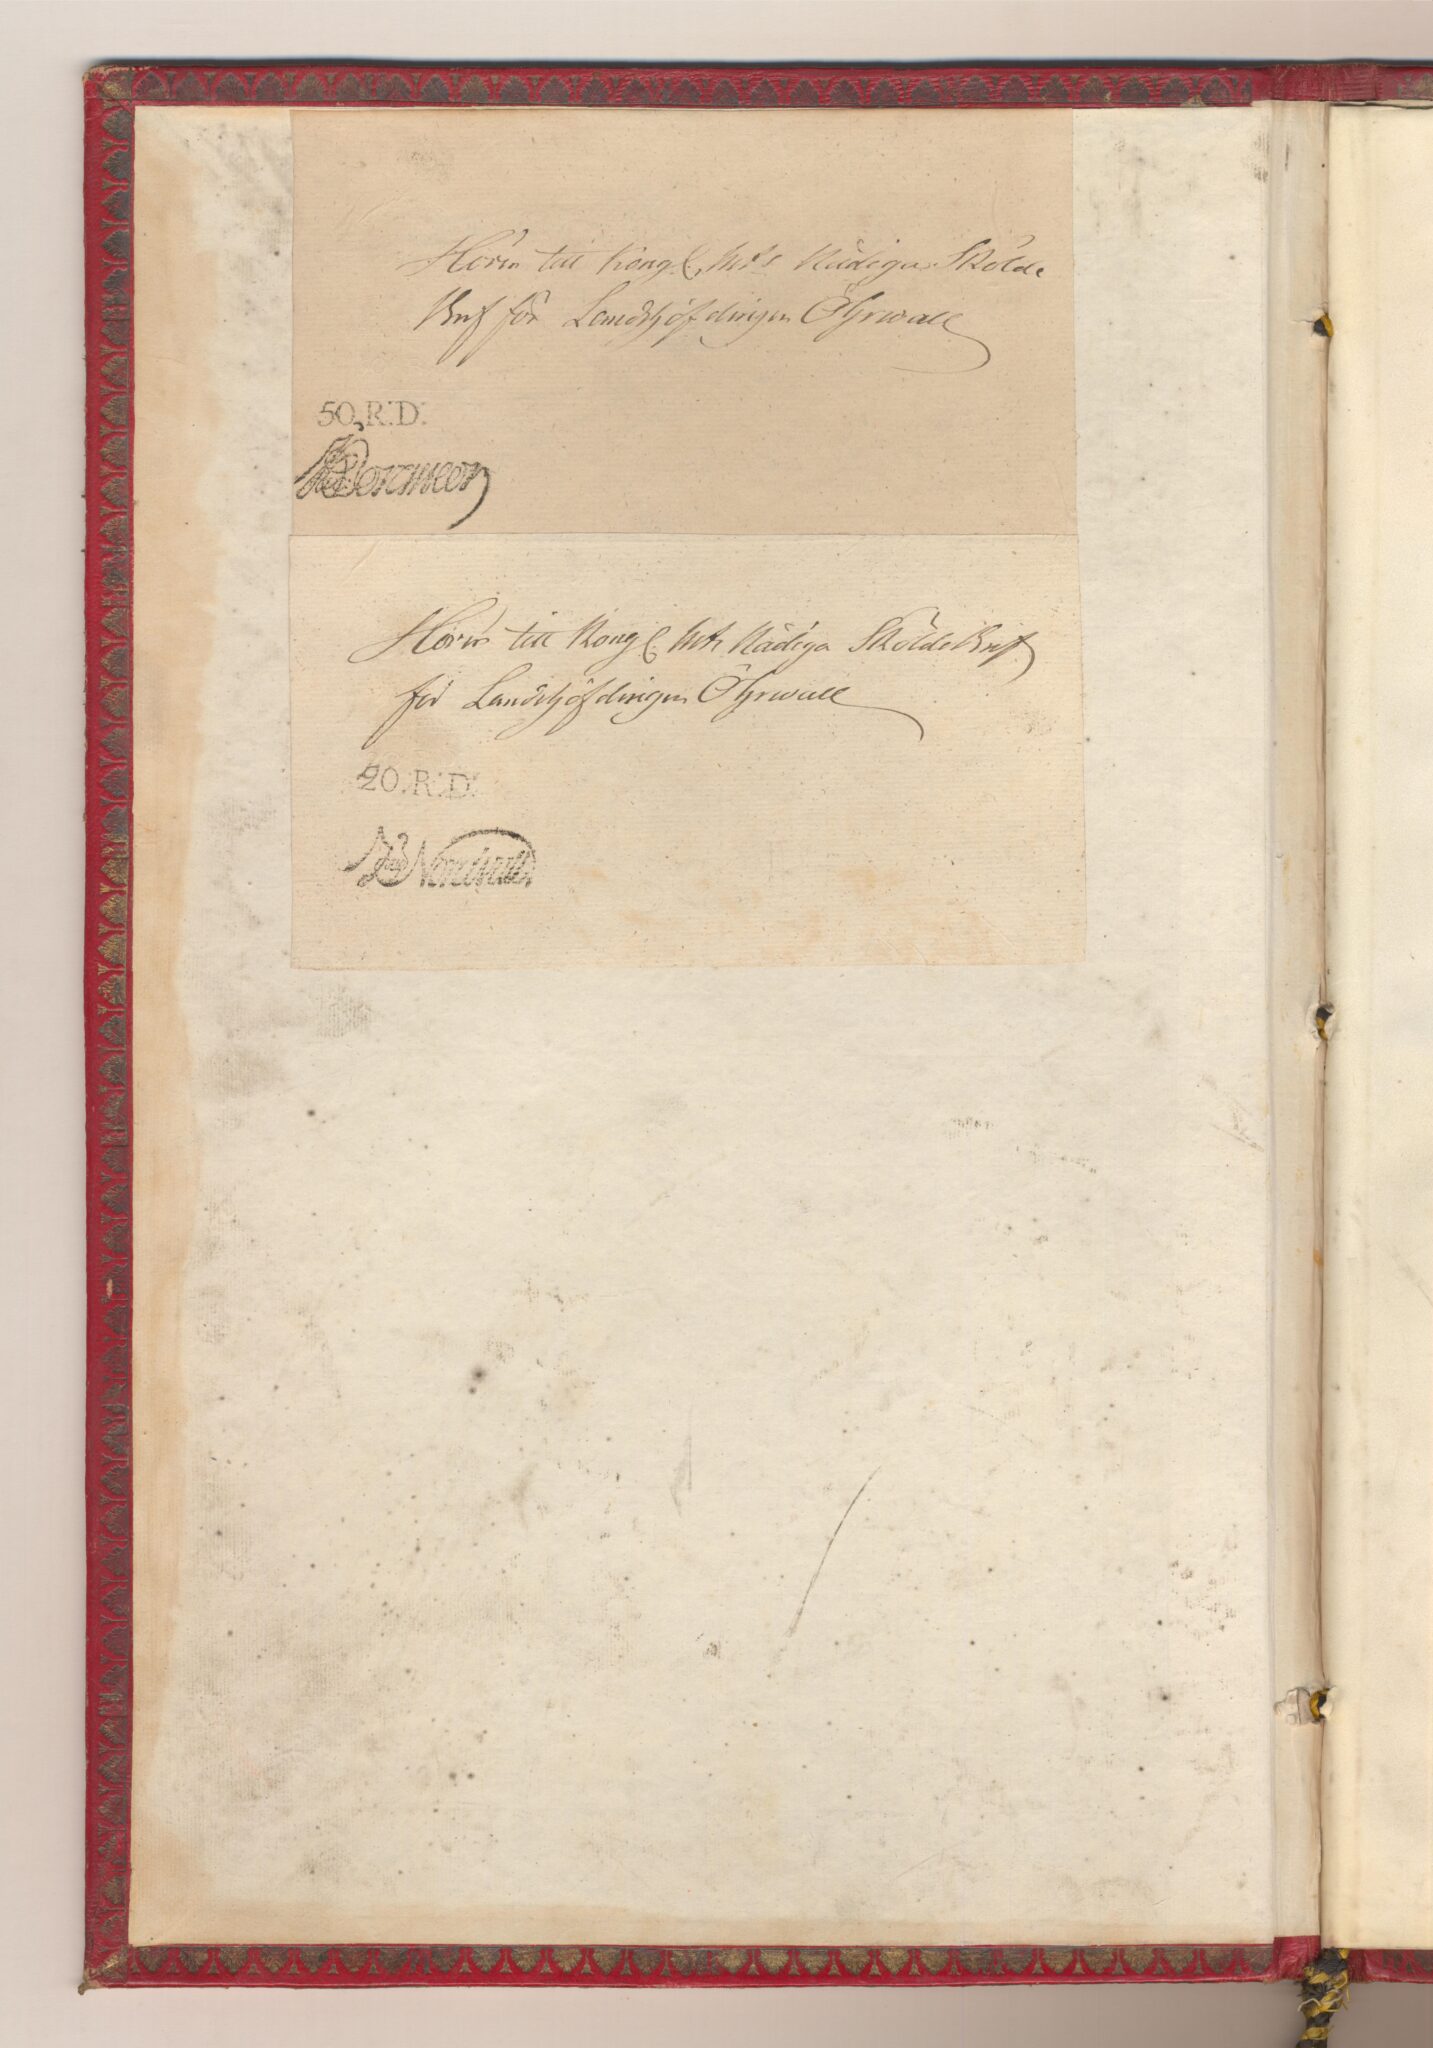 Hörer till Kongl. Mts Nådiga Skölde
Bref för Landshöfdingen Öhrwall
50. R:D:
Hörer till Kongl. Mts Nådiga SköldeBref
för Landshöfdingen Öhrwall
20. R:D: